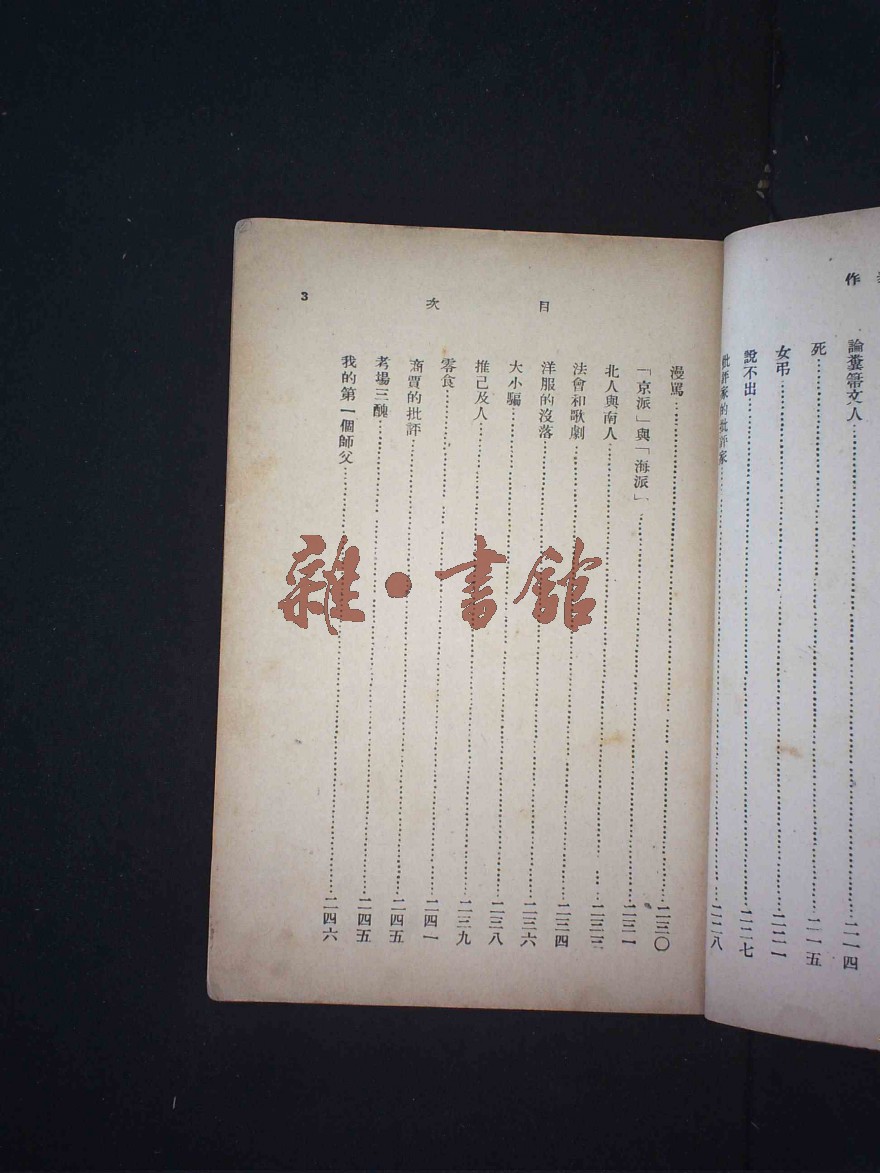 作
論糞箒文人……二一四
死……二一五
女弔……二二一
說不出……二二七
批評家的批評家……二二八
目次
3
漫罵……二三〇
「京派」與「海派」……二三一
北人與南人……二三三
法會和歌劇……二三四
洋服的沒落……二三六
大小騙……二三八
推己及人……二三九
零食……二四一
商賈的批評……二四五
考場三醜……二四五
我的第一個師父……二四六
雜·書館